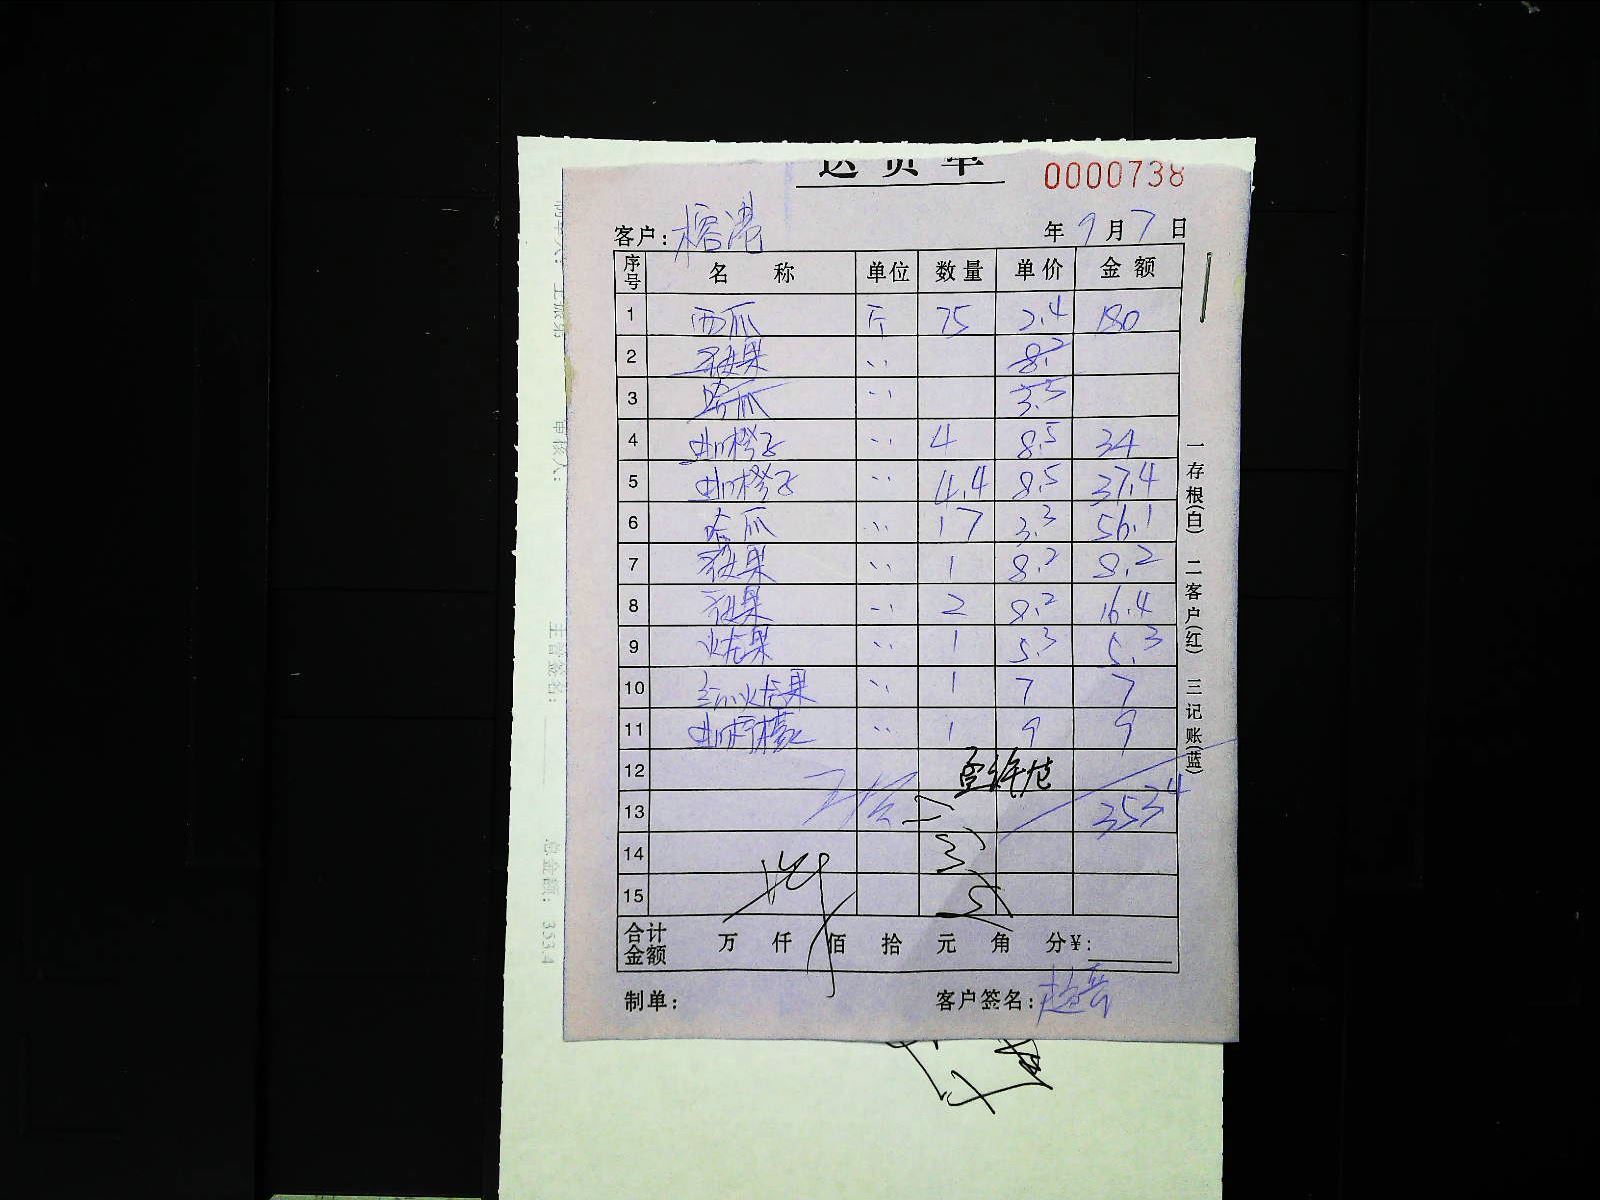 送货单 0000738
客户: 榕港 年 9 月 7 日
序号 名 称 单位 数量 单价 金额
1 西瓜 斤 75 2.4 180
2 苹果 ‥ 8.2
3 哈瓜 ‥ 3.5
4 进口橙子 ‥ 4 8.5 34
5 进口橙子 ‥ 4.4 8.5 37.4
6 哈瓜 ‥ 17 3.3 56.1
7 苹果 ‥ 1 8.2 8.2
8 苹果 ‥ 2 8.2 16.4
9 火龙果 ‥ 1 5.3 5.3
10 红心火龙果 ‥ 1 7 7
11 进口柠檬 ‥ 1 9 9
12
13 353.4
14
15
合计金额 万 仟 佰 拾 元 角 分¥:
制单: 客户签名:
一存根(白) 二客户(红) 三记账(蓝)
审核人:
主管签名:
总金额: 353.4